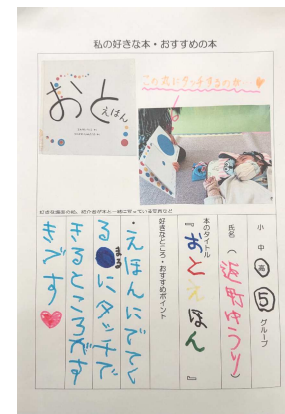 私の好きな本・おすすめの本
おと
えほん
この丸にタッチするのが…♥
好きな場面の絵、紹介者が本と一緒に写っている写真など
小 中 高 ⑤ グループ
氏名（
ゆうり）
本のタイトル
『おとえほん』
好きなところ・おすすめポイント
・えほんにでてく
る●にタッチで
まる
きるところがす
きです♥